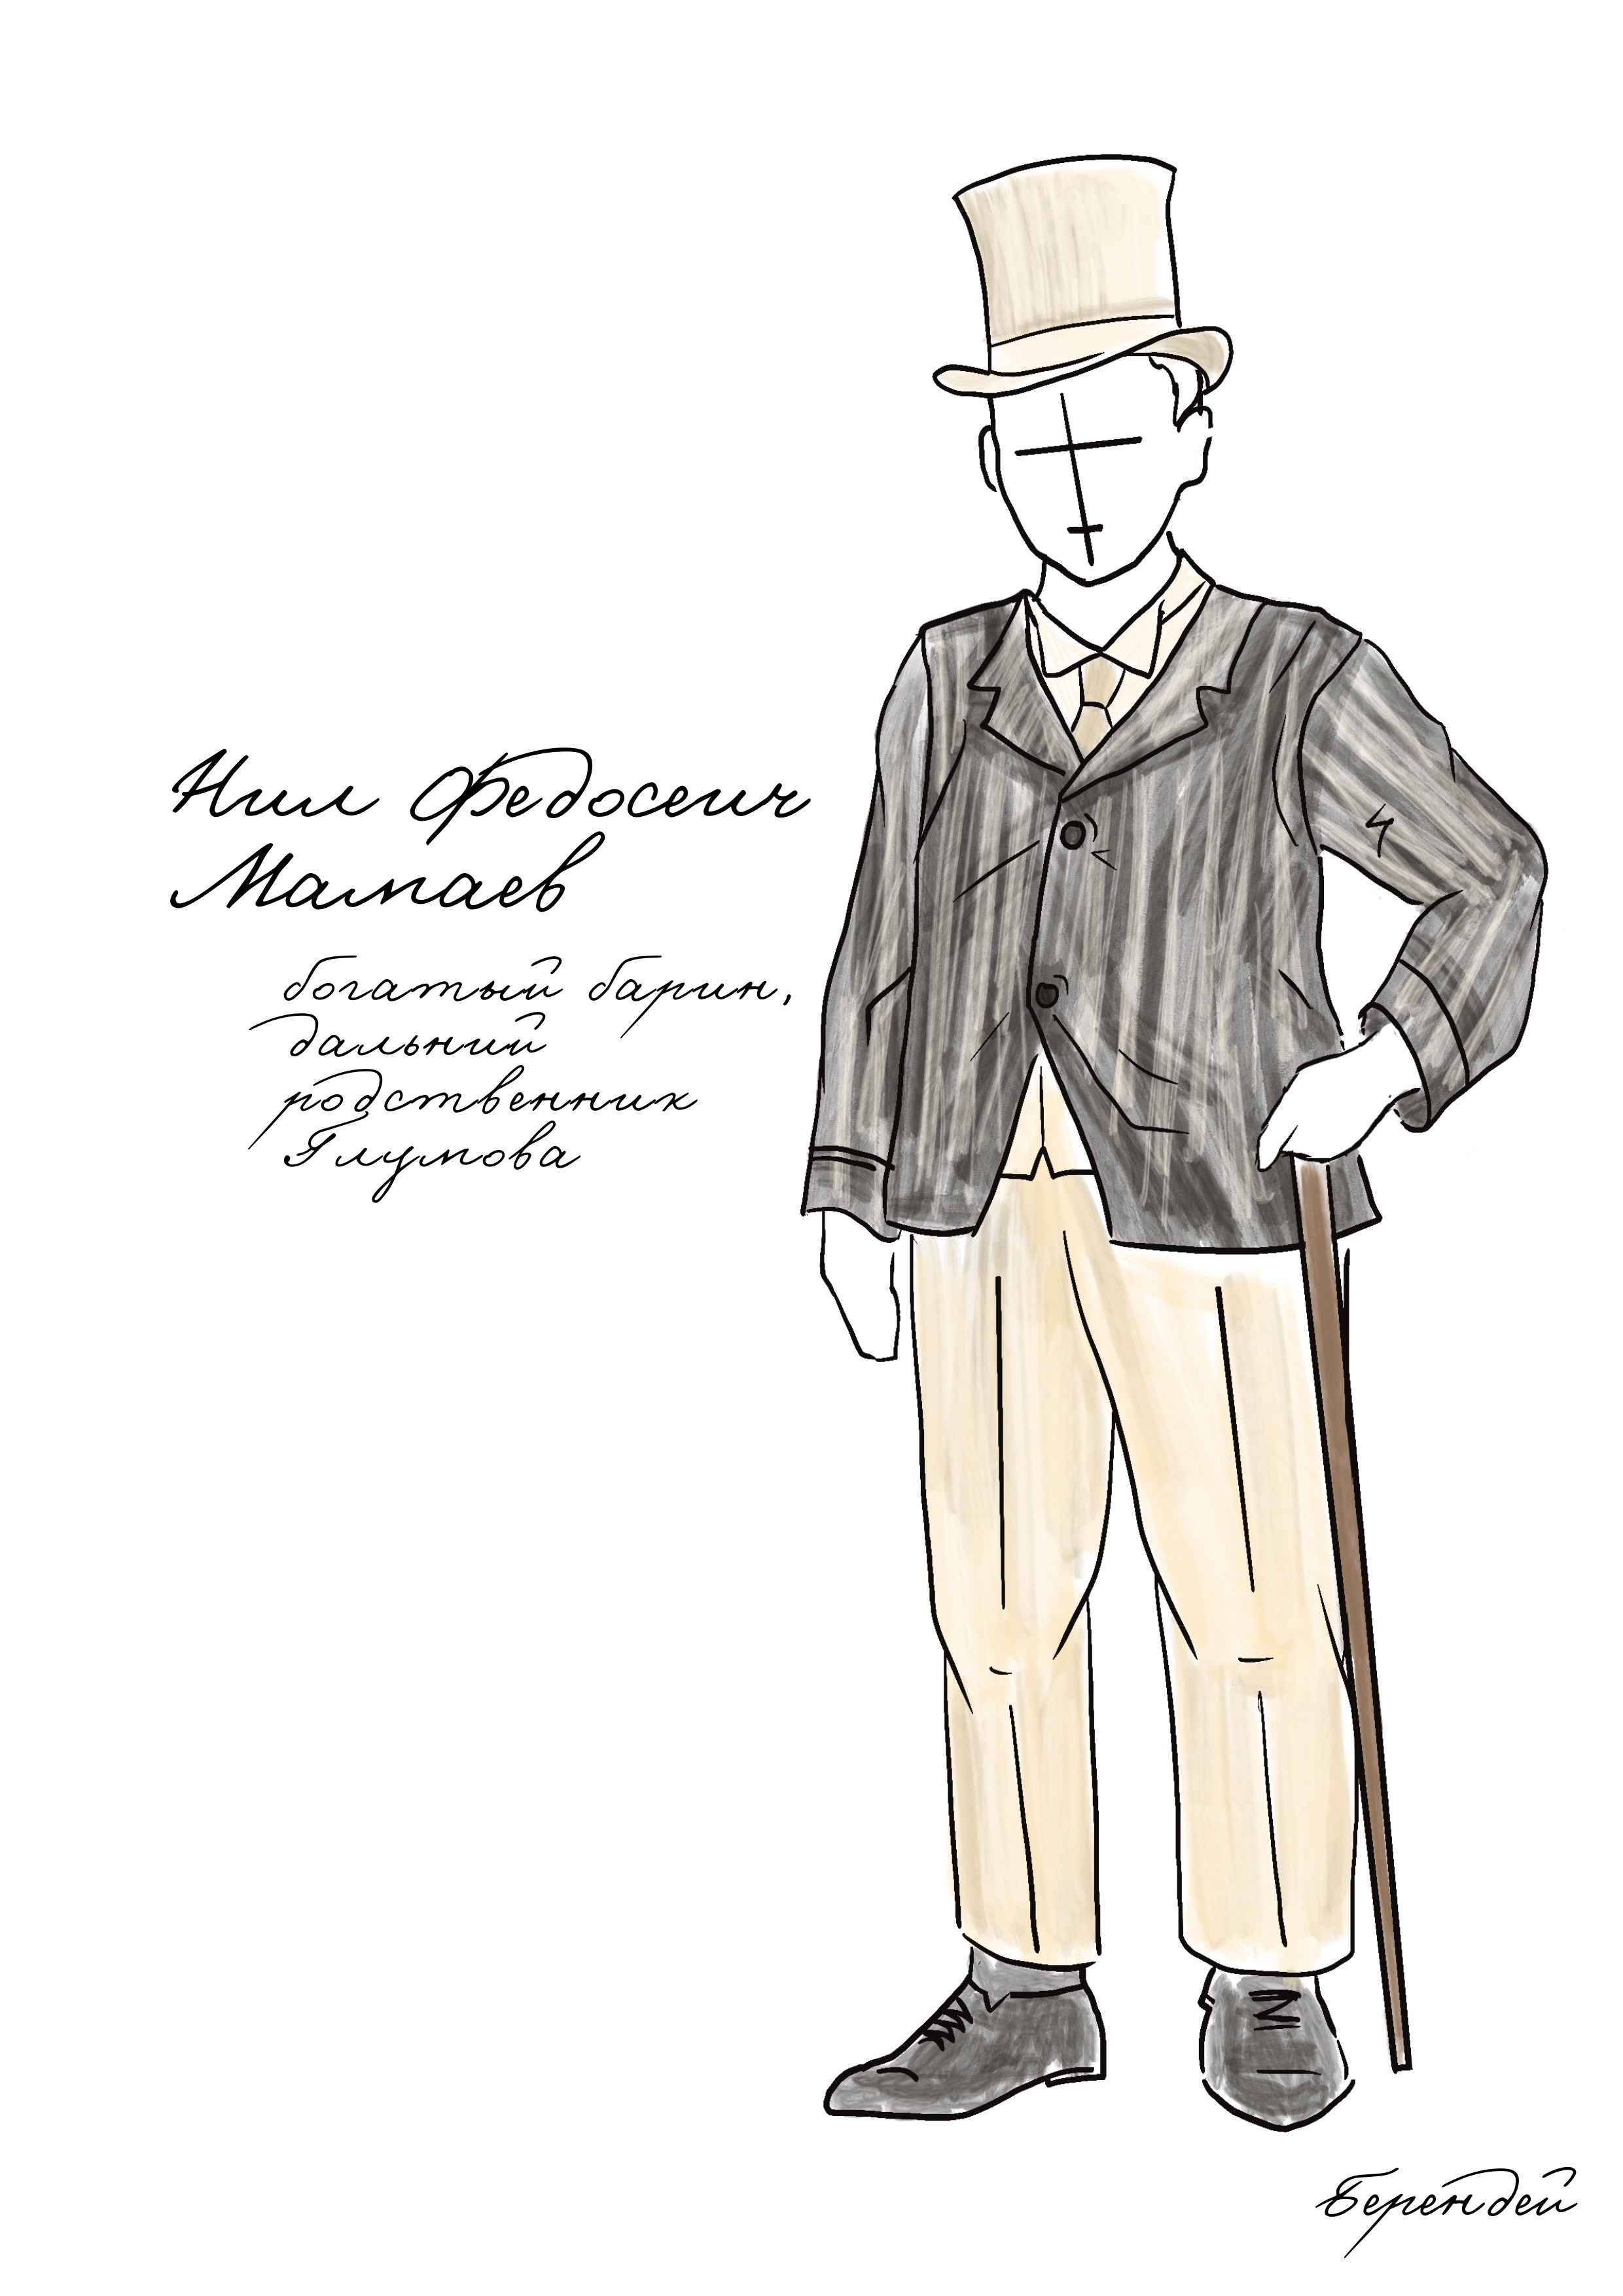 Нил Федосеич
Мамаев
богатый барин,
дальний
родственник
Глумова
Берендей